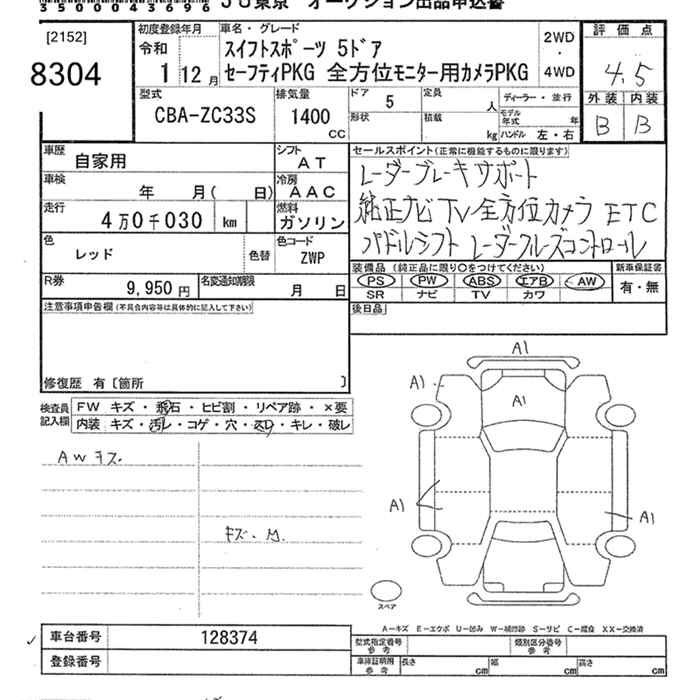 3500043696
JU東京 オークション出品申込書
[2152]
8304
初度登録年月
令和
1 12月
車名・グレード
スイフトスポーツ 5ドア
セーフティPKG 全方位モニター用カメラPKG
2WD
・
4WD
評価点
4.5
外装 内装
B B
型式
CBA-ZC33S
排気量
1400
CC
ドア 5
定員 人
形状
積載 kg
ディーラー・並行
モデル年式 年
ハンドル 左・右
車歴
自家用
シフト
AT
車検
年 月( 日)
冷房
AAC
走行
4万0千030 km
燃料
ガソリン
色
レッド
色替
色コード
ZWP
R券
9,950 円
名変通知期限
月 日
セールスポイント(正常に機能するものに限ります)
レーダーブレーキサポート
純正ナビ TV 全方位カメラ ETC
パドルシフト レーダークルーズコントロール
装備品 (純正品に限り○をつけてください)
新車保証書
PS PW ABS エアB AW
SR ナビ TV カワ
有・無
後日品
注意事項申告欄(不具合内容等は具体的に記入して下さい)
修復歴 有〔箇所 〕
検査員
記入欄
FW キズ・飛石・ヒビ割・リペア跡・×要
内装 キズ・汚レ・コゲ・穴・スレ・キレ・破レ
AWキズ
キズ・M.
A1
A1
A1
A1
A1
スペア
A−キズ E−エクボ U−凹み W−補修跡 S−サビ C−腐食 XX−交換済
車台番号 128374
登録番号
型式指定番号
参考
類別区分番号
参考
車庫証明用
参考
長さ cm 幅 cm 高さ cm